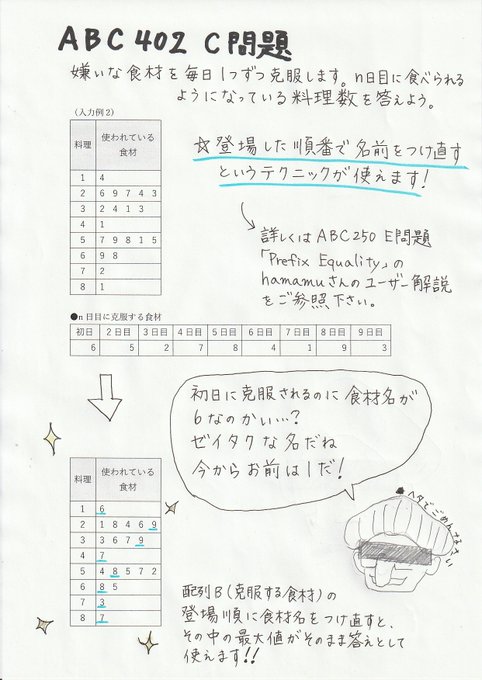 ABC402 C問題
嫌いな食材を毎日1つずつ克服します。n日目に食べられる
ようになっている料理数を答えよう。
(入力例2)
料理 使われている食材
1 4
2 6 9 7 4 3
3 2 4 1 3
4 1
5 7 9 8 1 5
6 9 8
7 2
8 1
☆登場した順番で名前をつけ直す
というテクニックが使えます!
詳しくはABC250 E問題
「Prefix Equality」の
hamamuさんのユーザー解説
をご参照下さい。
●n日目に克服する食材
初日 2日目 3日目 4日目 5日目 6日目 7日目 8日目 9日目
6 5 2 7 8 4 1 9 3
初日に克服されるのに食材名が
6なのかい…?
ゼイタクな名だね
今からお前は1だ!
料理 使われている食材
1 6
2 1 8 4 6 9
3 3 6 7 9
4 7
5 4 8 5 7 2
6 8 5
7 3
8 7
ヘタでごめんなさい
配列B(克服する食材)の
登場順に食材名をつけ直すと、
その中の最大値がそのまま答えとして
使えます!!